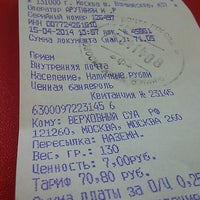 131000 г. Москва
Оператор АРУТЮНЯН И Р
Серийный номер 126497
ИНН 007724261610
15-04-2014 13:57
Сумма документа (нал): 71,05
Прием
Внутренняя почта
Население, Наличные рубли
Ценная бандероль
Квитанция № 23145
6300097223145 6
Кому: ВЕРХОВНЫЙ СУД РФ
121260, МОСКВА, МОСКВА 260
Пересылка: НАЗЕМН.
Вес, гр.: 130
Ценность: 7,00руб.
Тариф 70,80 руб.
Сумма платы за О/Ц 0,25